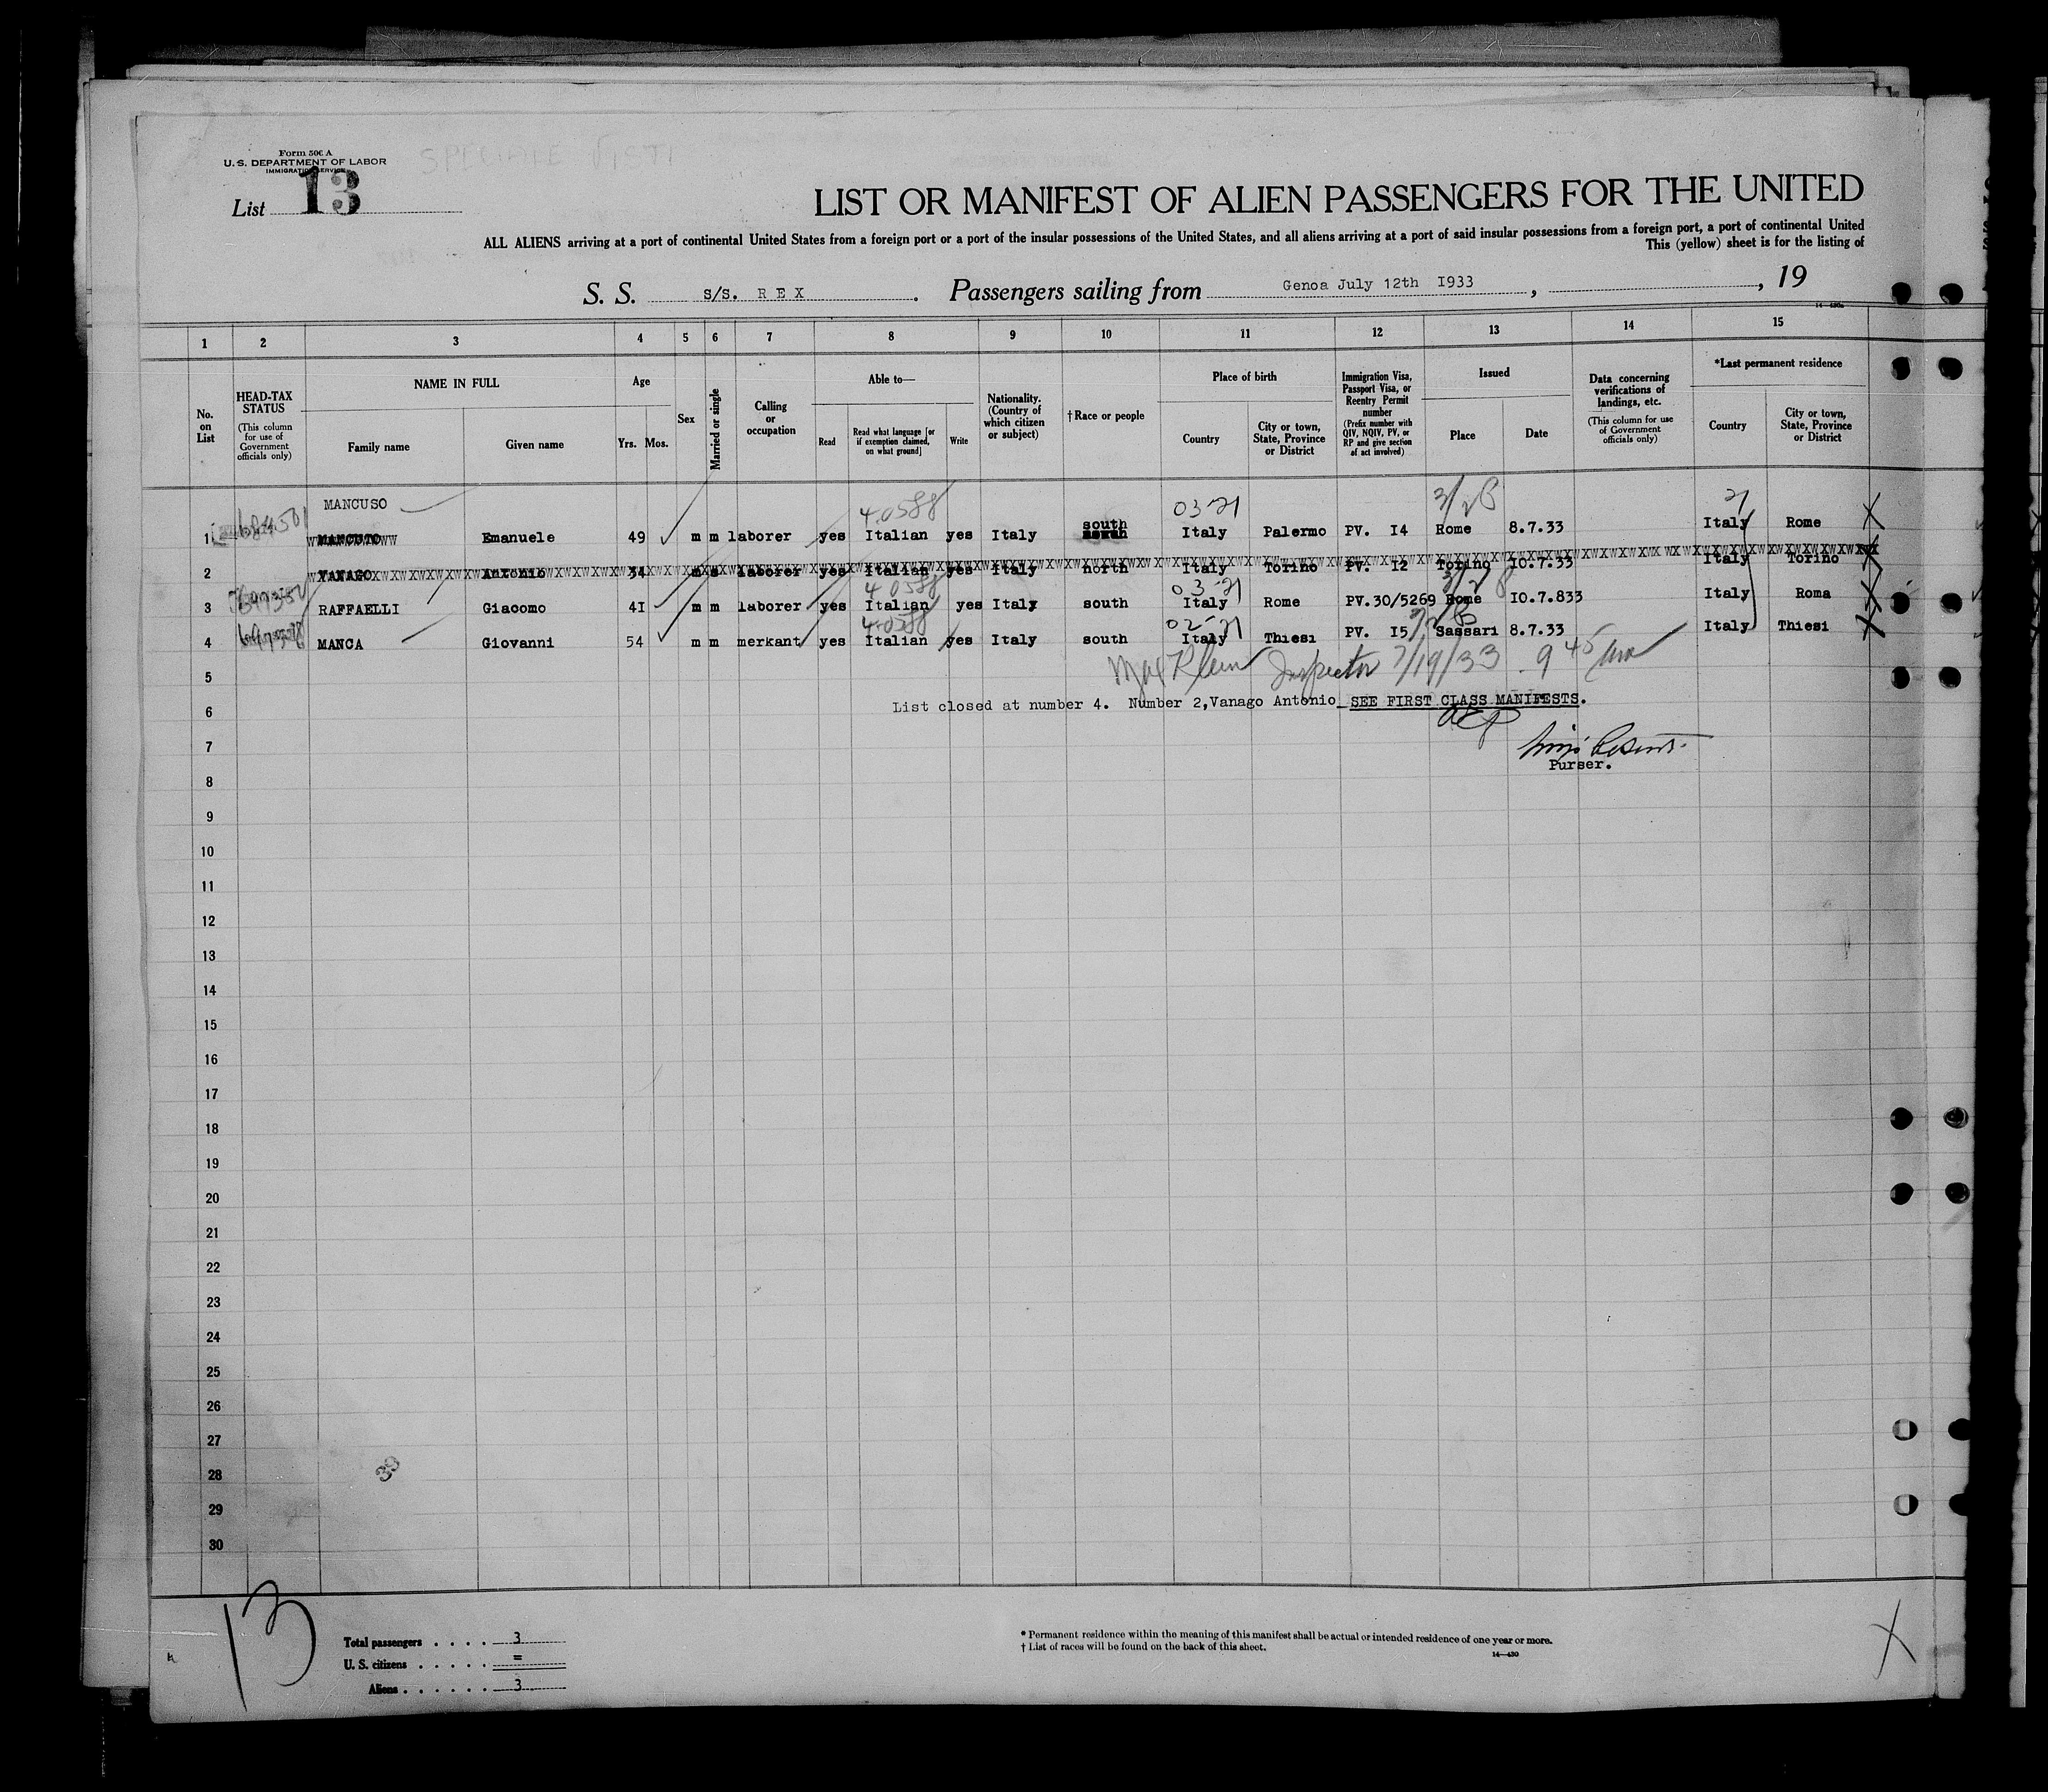 Form 500 A
U. S. DEPARTMENT OF LABOR
IMMIGRATION SERVICE
SPECIALE VISTI
List 13
LIST OR MANIFEST OF ALIEN PASSENGERS FOR THE UNITED
ALL ALIENS arriving at a port of continental United States from a foreign port or a port of the insular possessions of the United States, and all aliens arriving at a port of said insular possessions from a foreign port, a port of continental United
This (yellow) sheet is for the listing of
S. S. S/S. R E X . Passengers sailing from Genoa July 12th I933 , , 19
1 2 3 4 5 6 7 8 9 10 11 12 13 14 15
No. on List
HEAD-TAX STATUS (This column for use of Government officials only)
NAME IN FULL
Family name Given name
Age
Yrs. Mos.
Sex
Married or single
Calling or occupation
Able to—
Read Read what language [or if exemption claimed, on what ground] Write
Nationality. (Country of which citizen or subject)
† Race or people
Place of birth
Country City or town, State, Province or District
Immigration Visa, Passport Visa, or Reentry Permit number (Prefix number with QIV, NQIV, PV, or RP and give section of act involved)
Issued
Place Date
Data concerning verifications of landings, etc. (This column for use of Government officials only)
*Last permanent residence
Country City or town, State, Province or District
MANCUSO 4-0588 03-21 3/2B 21
1 MANCUTO Emanuele 49 m m laborer yes Italian yes Italy south Italy Palermo PV. I4 Rome 8.7.33 Italy Rome X
2 VANAGO Antonio 34 m s laborer yes Italian yes Italy north Italy Torino PV. I2 Torino I0.7.33 Italy Torino
4 0588 03-21
3 RAFFAELLI Giacomo 4I m m laborer yes Italian yes Italy south Italy Rome PV.30/5269 Rome I0.7.833 Italy Roma X
4-0588 02-21
4 MANCA Giovanni 54 m m merkant yes Italian yes Italy south Italy Thiesi PV. I5 Sassari 8.7.33 Italy Thiesi X
5 Max Klein Inspector 7/19/33 9 45 am
6 List closed at number 4. Number 2,Vanago Antonio SEE FIRST CLASS MANIFESTS.
7
Purser.
8
9
10
11
12
13
14
15
16
17
18
19
20
21
22
23
24
25
26
27
28
39
29
30
13
Total passengers . . . . 3
U. S. citizens . . . . . =
Aliens . . . . . . 3
* Permanent residence within the meaning of this manifest shall be actual or intended residence of one year or more.
† List of races will be found on the back of this sheet.
14—430
X